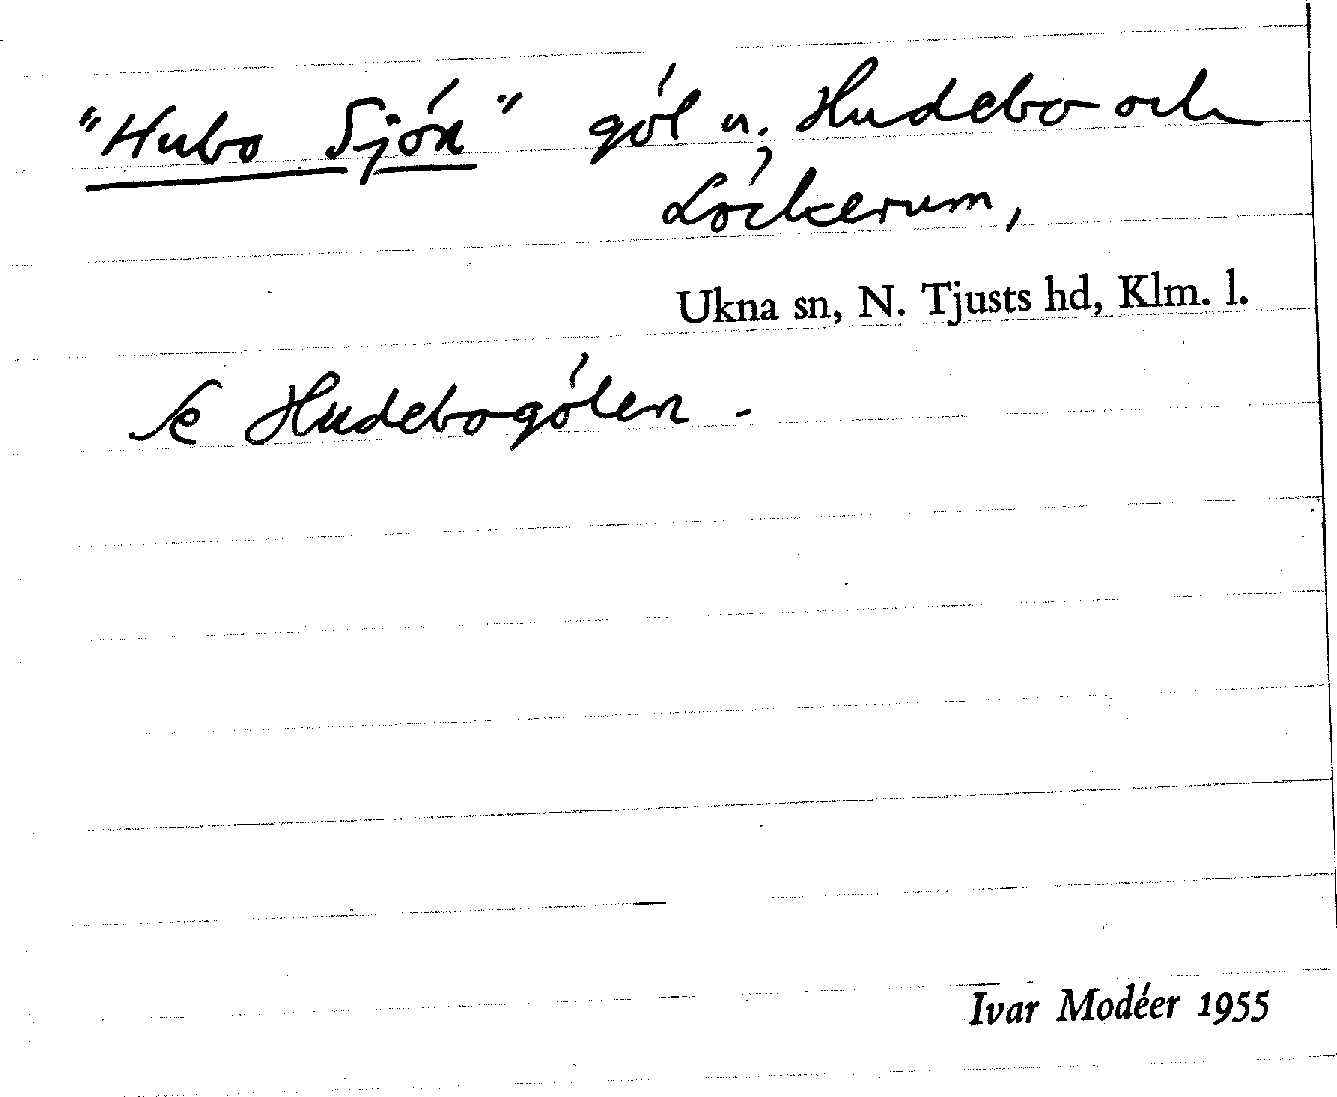 "Hubo Sjön" göl u. Hudebo och
Löckerum,
Ukna sn, N. Tjusts hd, Klm. l.
se Hudebogölen -
Ivar Modéer 1955